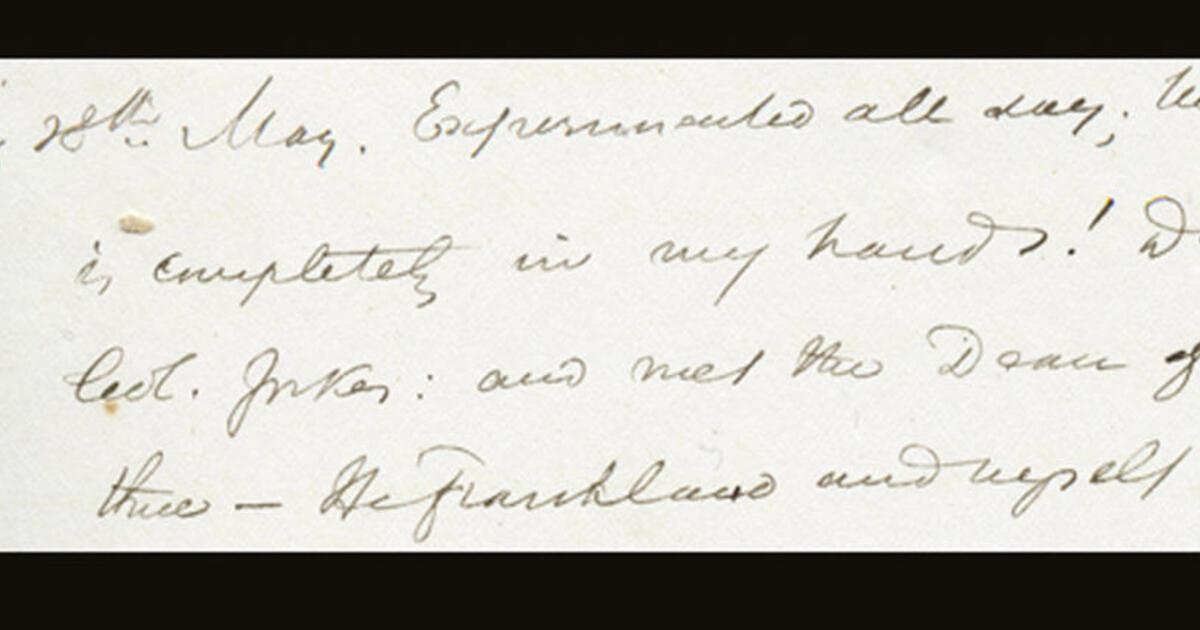 18th May. Experimented all day;
is completely in my hands!
Col. Yorkes: and met the Dean of
there — He Frankland and myself